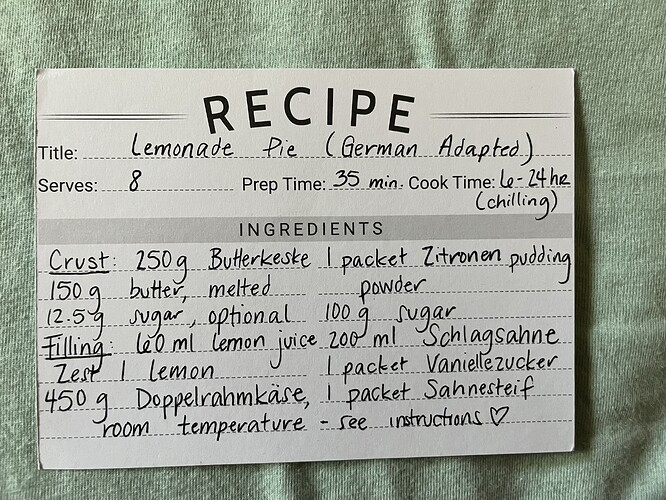 RECIPE
Title: Lemonade Pie (German Adapted)
Serves: 8 Prep Time: 35 min. Cook Time: 6-24 hr
(chilling)
INGREDIENTS
Crust: 250g Butterkeske 1 packet Zitronen pudding
150g butter, melted powder
12.5g sugar, optional 100g sugar
Filling: 60 ml lemon juice 200 ml Schlagsahne
Zest 1 lemon 1 packet Vaniellezucker
450g Doppelrahmkäse, 1 packet Sahnesteif
room temperature - see instructions ♡